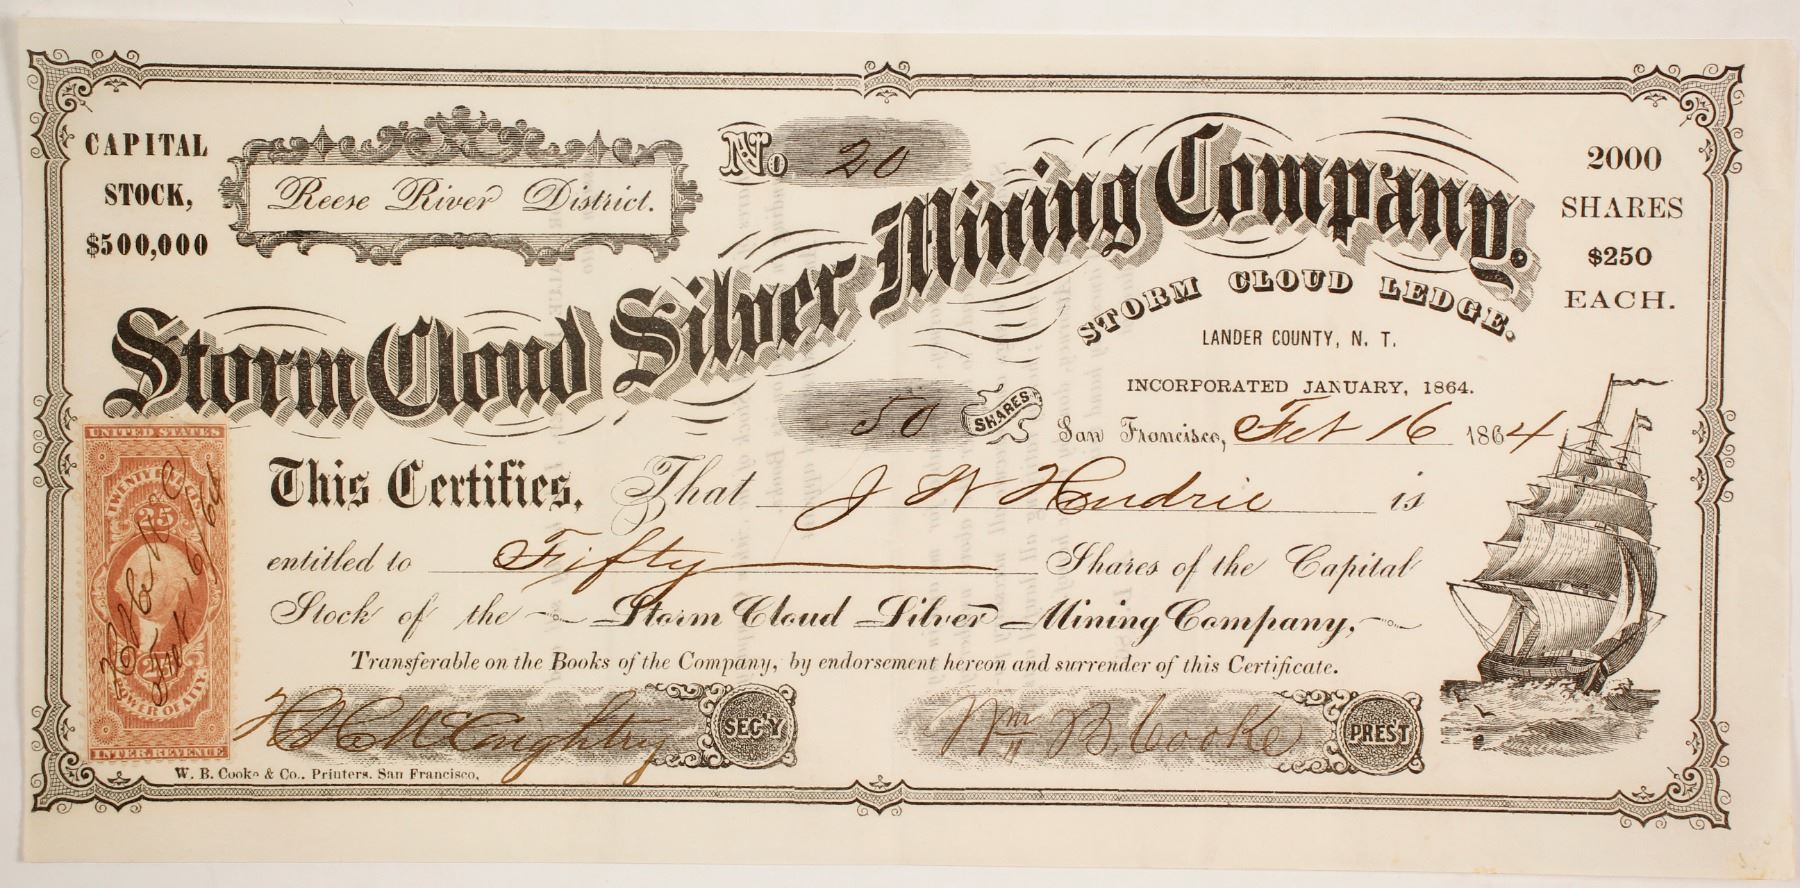 CAPITAL
STOCK,
$500,000
Reese River District.
No. 20
2000
SHARES
$250
EACH.
Storm Cloud Silver Mining Company.
STORM CLOUD LEDGE.
LANDER COUNTY, N. T.
INCORPORATED JANUARY, 1864.
50 SHARES
San Francisco, Feb 16 1864
This Certifies, That J W Hendrie is
entitled to Fifty Shares of the Capital
Stock of the Storm Cloud Silver Mining Company,
Transferable on the Books of the Company, by endorsement hereon and surrender of this Certificate.
H H McCoughtry SEC'Y
Wm B. Cooke PREST
W. B. Cooke & Co., Printers, San Francisco.
UNITED STATES
25
POWER OF ATT'Y
INTER. REVENUE